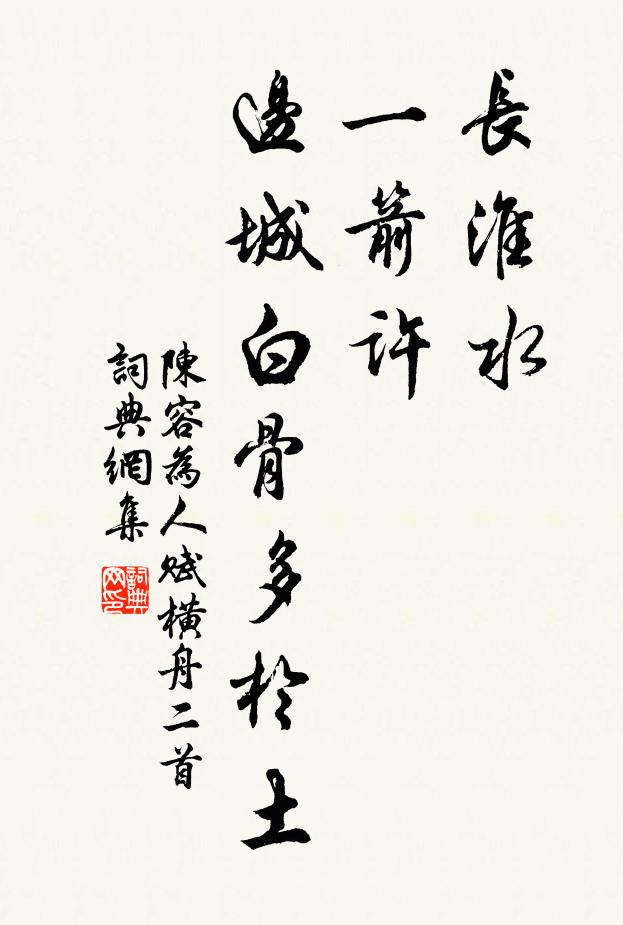 長淮水
一箭許
邊城白骨多於土
陳容為人賦橫舟二首
詞典網集
詞典
网印